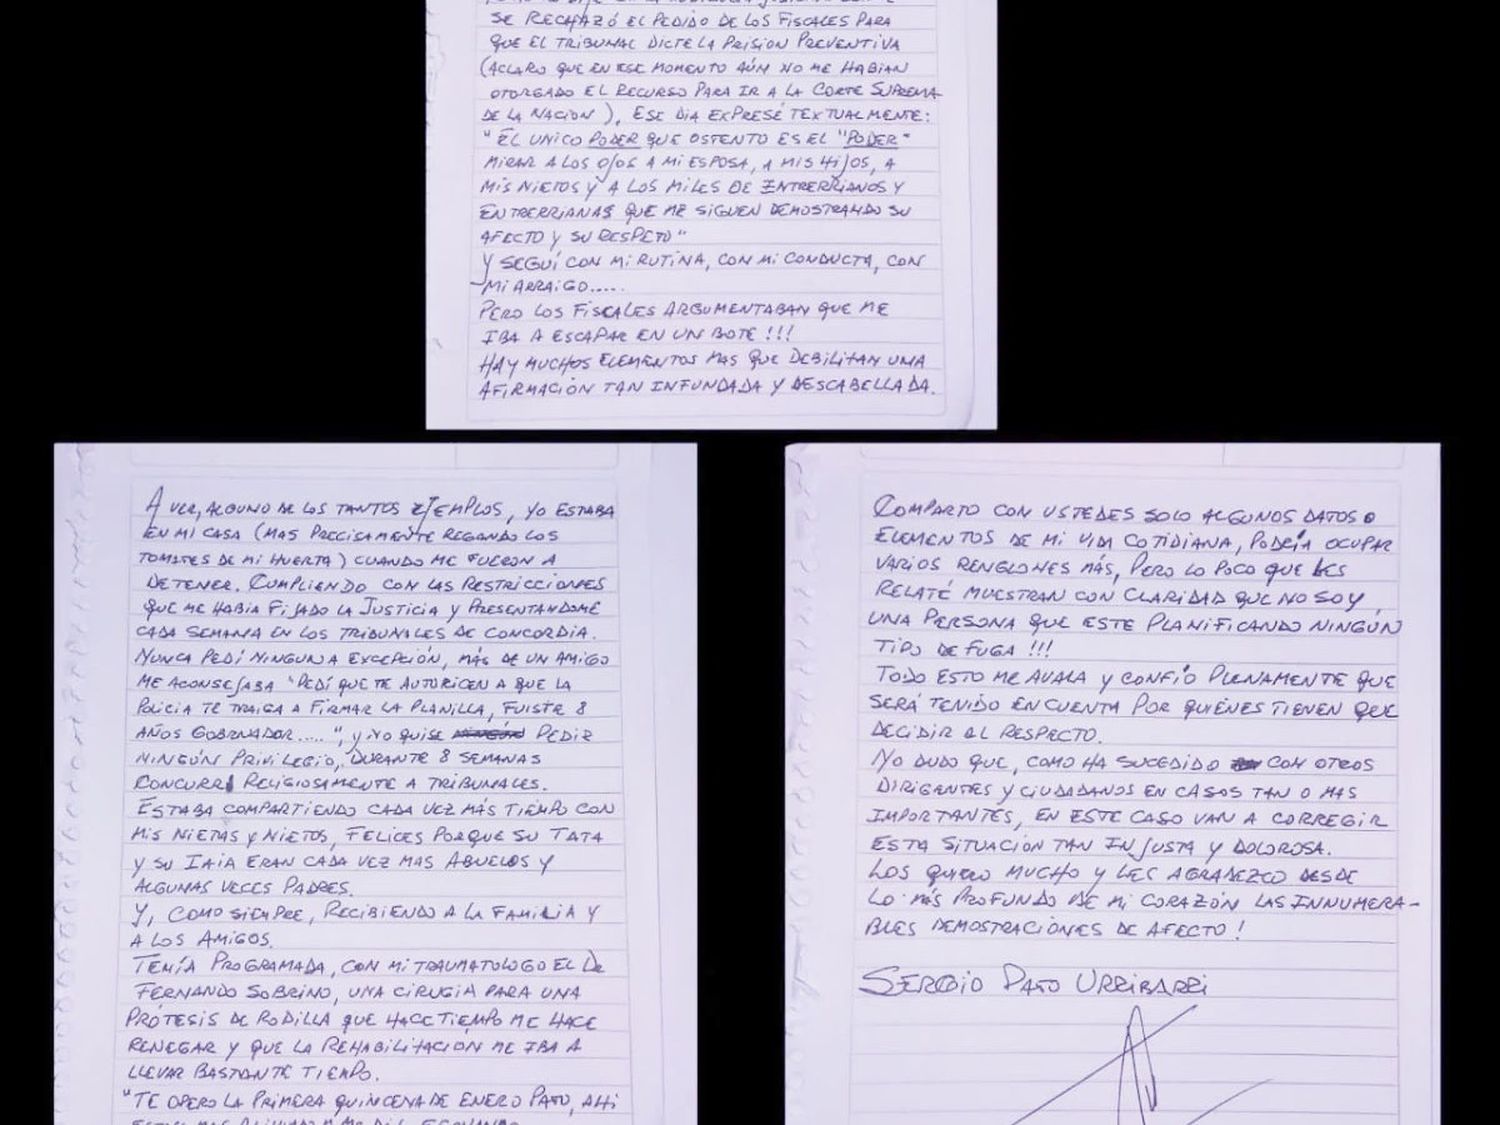 SE RECHAZÓ EL PEDIDO DE LOS FISCALES PARA
QUE EL TRIBUNAL DICTE LA PRISION PREVENTIVA
(ACLARO QUE EN ESE MOMENTO AÚN NO ME HABIAN
OTORGADO EL RECURSO PARA IR A LA CORTE SUPREMA
DE LA NACION), ESE DIA EXPRESÉ TEXTUALMENTE:
"EL UNICO PODER QUE OSTENTO ES EL "PODER"
MIRAR A LOS OJOS A MI ESPOSA, A MIS HIJOS, A
MIS NIETOS Y A LOS MILES DE ENTRERRIANOS Y
ENTRERRIANAS QUE ME SIGUEN DEMOSTRANDO SU
AFECTO Y SU RESPETO"
Y SEGUÍ CON MI RUTINA, CON MI CONDUCTA, CON
MI ARRAIGO.....
PERO LOS FISCALES ARGUMENTABAN QUE ME
IBA A ESCAPAR EN UN BOTE !!!
HAY MUCHOS ELEMENTOS MAS QUE DEBILITAN UNA
AFIRMACIÓN TAN INFUNDADA Y DESCABELLADA.
A VER, ALGUNO DE LOS TANTOS EJEMPLOS, YO ESTABA
EN MI CASA (MAS PRECISAMENTE REGANDO LOS
TOMATES DE MI HUERTA) CUANDO ME FUERON A
DETENER. CUMPLIENDO CON LAS RESTRICCIONES
QUE ME HABIA FIJADO LA JUSTICIA Y PRESENTANDOME
CADA SEMANA EN LOS TRIBUNALES DE CONCORDIA.
NUNCA PEDÍ NINGUNA EXCEPCIÓN, MÁS DE UN AMIGO
ME ACONSEJABA "PEDÍ QUE TE AUTORICEN A QUE LA
POLICIA TE TRAIGA A FIRMAR LA PLANILLA, FUISTE 8
AÑOS GOBERNADOR.....", Y NO QUISE PEDIR
NINGÚN PRIVILEGIO, DURANTE 8 SEMANAS
CONCURRI RELIGIOSAMENTE A TRIBUNALES.
ESTABA COMPARTIENDO CADA VEZ MÁS TIEMPO CON
MIS NIETAS Y NIETOS, FELICES PORQUE SU TATA
Y SU IAIA ERAN CADA VEZ MAS ABUELOS Y
ALGUNAS VECES PADRES.
Y, COMO SIEMPRE, RECIBIENDO A LA FAMILIA Y
A LOS AMIGOS.
TENÍA PROGRAMADA, CON MI TRAUMATOLOGO EL DR
FERNANDO SOBRINO, UNA CIRUGIA PARA UNA
PRÓTESIS DE RODILLA QUE HACE TIEMPO ME HACE
RENEGAR Y QUE LA REHABILITACION ME IBA A
LLEVAR BASTANTE TIEMPO.
"TE OPERO LA PRIMERA QUINCENA DE ENERO PATO, AHI
COMPARTO CON USTEDES SOLO ALGUNOS DATOS O
ELEMENTOS DE MI VIDA COTIDIANA, PODRÍA OCUPAR
VARIOS RENGLONES MÁS, PERO LO POCO QUE LES
RELATÉ MUESTRAN CON CLARIDAD QUE NO SOY
UNA PERSONA QUE ESTE PLANIFICANDO NINGÚN
TIPO DE FUGA !!!
TODO ESTO ME AVALA Y CONFÍO PLENAMENTE QUE
SERÁ TENIDO EN CUENTA POR QUIÉNES TIENEN QUE
DECIDIR AL RESPECTO.
NO DUDO QUE, COMO HA SUCEDIDO CON OTROS
DIRIGENTES Y CIUDADANOS EN CASOS TAN O MAS
IMPORTANTES, EN ESTE CASO VAN A CORREGIR
ESTA SITUACIÓN TAN INJUSTA Y DOLOROSA.
LOS QUIERO MUCHO Y LES AGRADEZCO DESDE
LO MÁS PROFUNDO DE MI CORAZÓN LAS INNUMERA-
BLES DEMOSTRACIONES DE AFECTO !
SERGIO PATO URRIBARRI